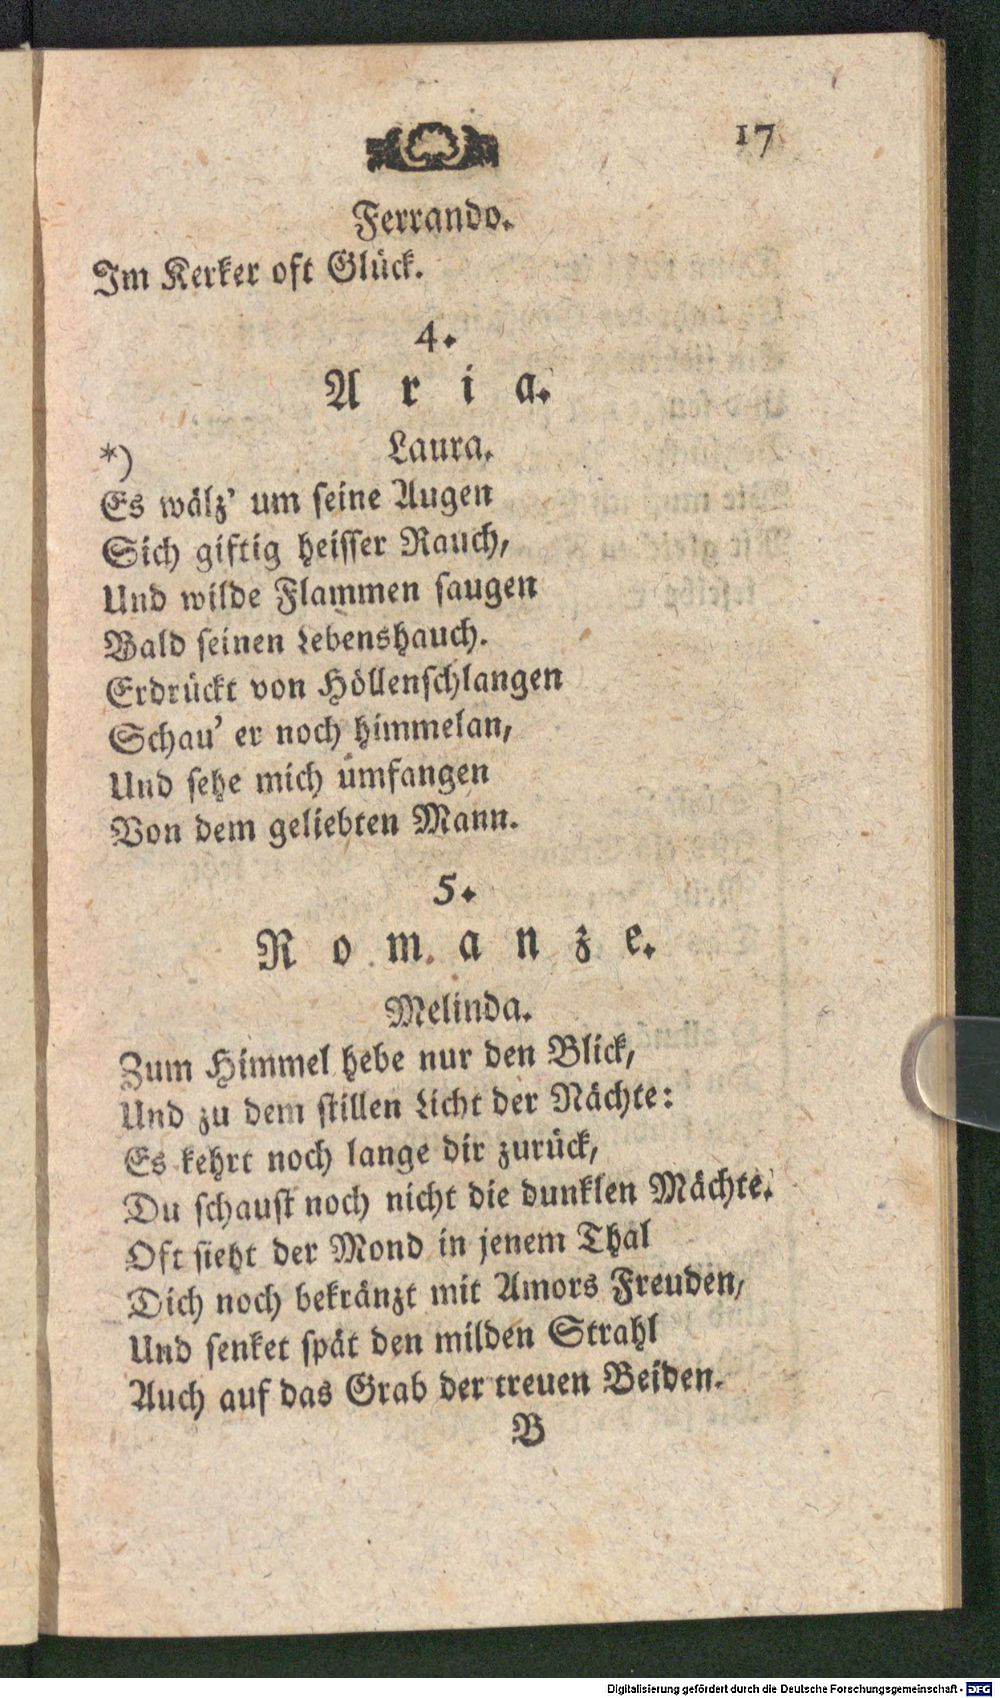 17
Ferrando.
Im Kerker oft Glück.
4.
Aria.
Laura.
*)
Es wälz' um seine Augen
Sich giftig heisser Rauch,
Und wilde Flammen saugen
Bald seinen Lebenshauch.
Erdrückt von Höllenschlangen
Schau' er noch himmelan,
Und sehe mich umfangen
Von dem geliebten Mann.
5.
Romanze.
Melinda.
Zum Himmel hebe nur den Blick,
Und zu dem stillen Licht der Nächte:
Es kehrt noch lange dir zurück,
Du schaust noch nicht die dunklen Mächte.
Oft sieht der Mond in jenem Thal
Dich noch bekränzt mit Amors Freuden,
Und senket spät den milden Strahl
Auch auf das Grab der treuen Beiden.
B
Digitalisierung gefördert durch die Deutsche Forschungsgemeinschaft - DFG